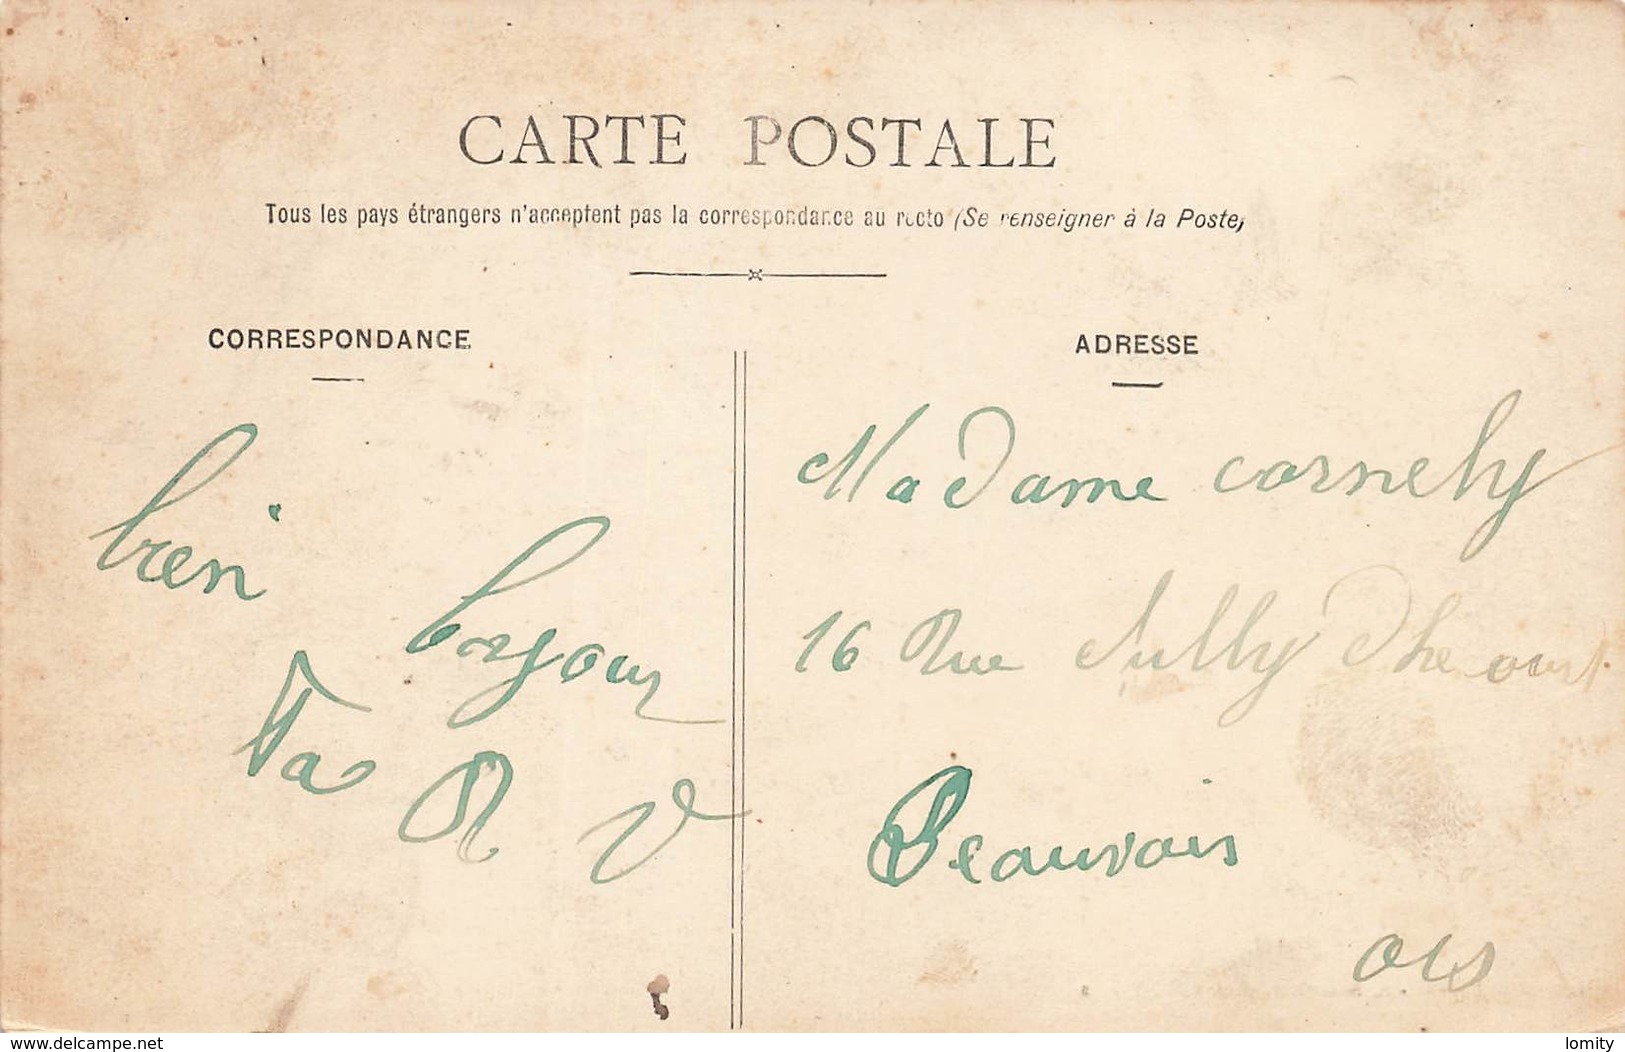 CARTE POSTALE
Tous les pays étrangers n'acceptent pas la correspondance au recto (Se renseigner à la Poste)
CORRESPONDANCE
bien
bonjour
Ta R V
ADRESSE
Madame cornely
16 Rue Sully Dhecourt
Beauvais
ois
www.delcampe.net
lomity